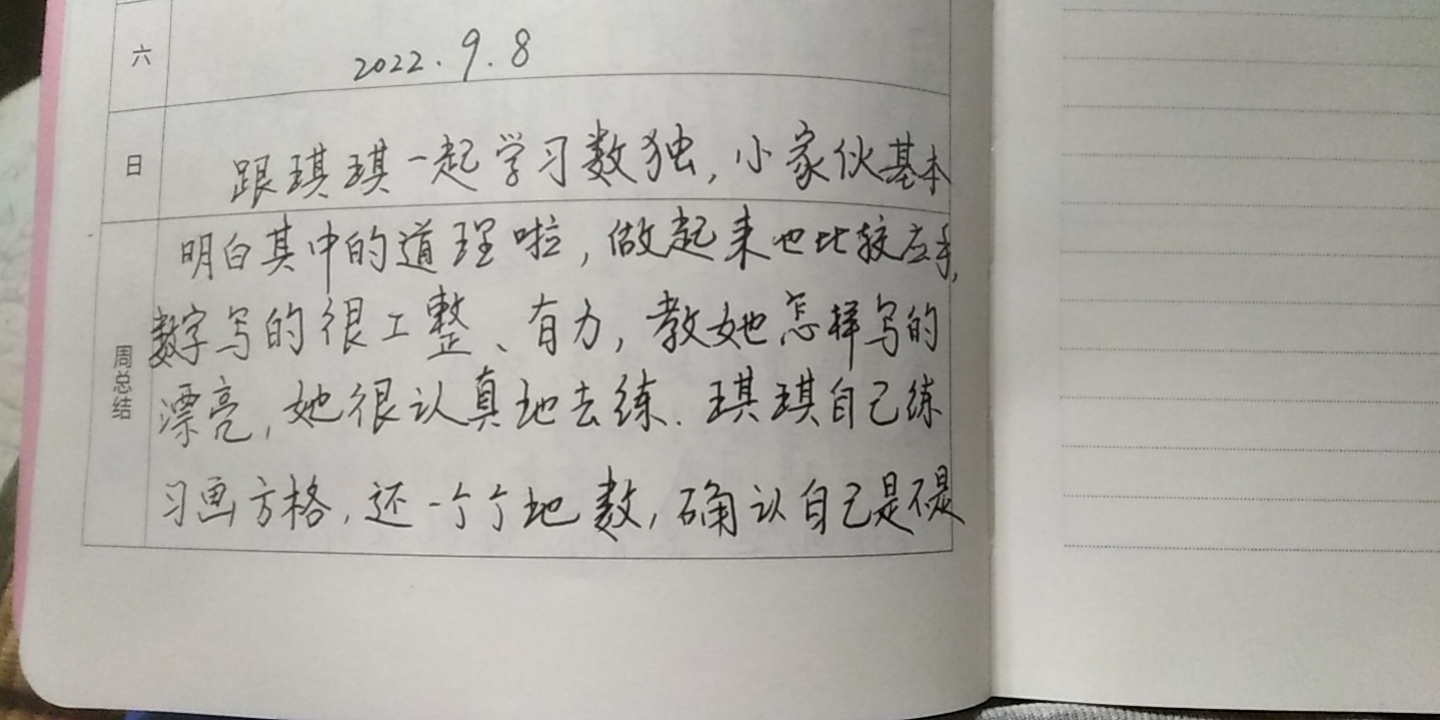 六
2022.9.8
日
跟琪琪一起学习数独,小家伙基本
明白其中的道理啦,做起来也比较应手,
数字写的很工整、有力,教她怎样写的
周总结
漂亮,她很认真地去练.琪琪自己练
习画方格,还一个个地数,确认自己是不是